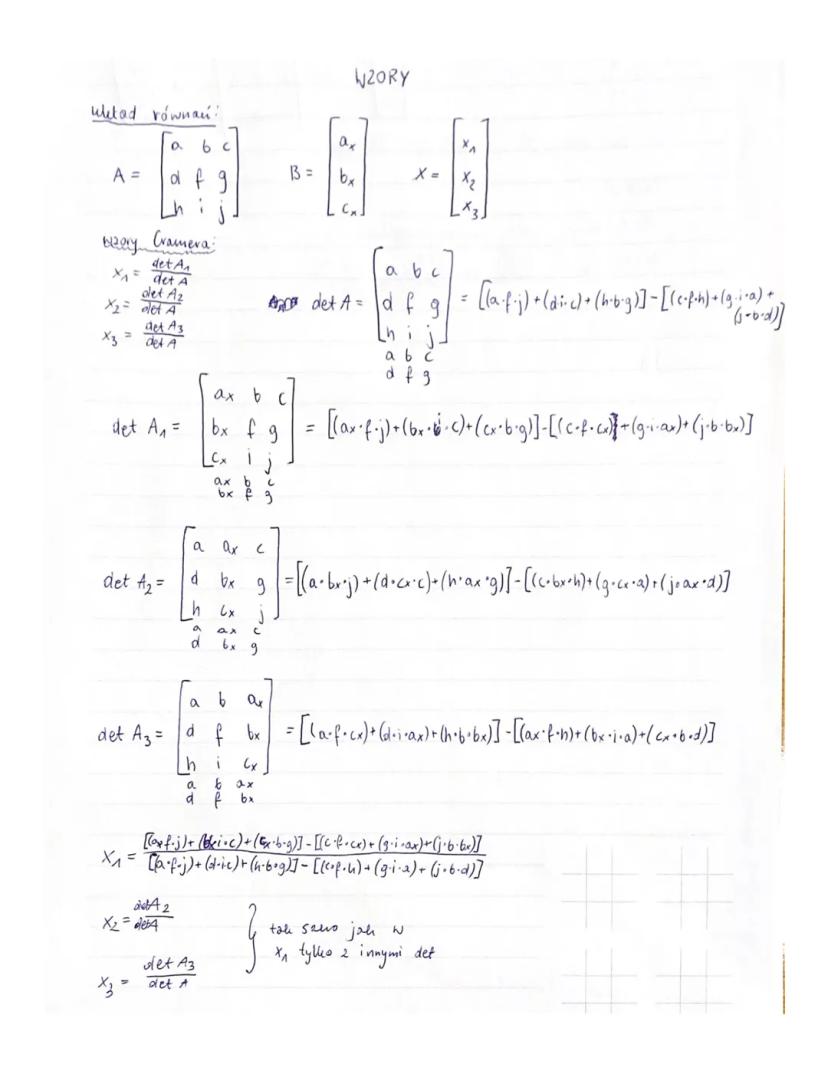 WZORY
układ równań:
A = [a b c
d f g
h i j]
B = [ax
bx
cx]
X = [x1
x2
x3]
wzory Cramera:
x1 = det A1 / det A
x2 = det A2 / det A
x3 = det A3 / det A
det A = [a b c
d f g
h i j]
a b c
d f g
= [(a·f·j)+(d·i·c)+(h·b·g)]-[(c·f·h)+(g·i·a)+
(j·b·d)]
det A1 = [ax b c
bx f g
cx i j]
ax b c
bx f g
= [(ax·f·j)+(bx·i·c)+(cx·b·g)]-[(c·f·cx)+(g·i·ax)+(j·b·bx)]
det A2 = [a ax c
d bx g
h cx j]
a ax c
d bx g
= [(a·bx·j)+(d·cx·c)+(h·ax·g)]-[(c·bx·h)+(g·cx·a)+(j·ax·d)]
det A3 = [a b ax
d f bx
h i cx]
a b ax
d f bx
= [(a·f·cx)+(d·i·ax)+(h·b·bx)]-[(ax·f·h)+(bx·i·a)+(cx·b·d)]
x1 = [(ax·f·j)+(bx·i·c)+(cx·b·g)]-[(c·f·cx)+(g·i·ax)+(j·b·bx)] / [(a·f·j)+(d·i·c)+(h·b·g)]-[(c·f·h)+(g·i·a)+(j·b·d)]
x2 = det A2 / det A
x3 = det A3 / det A
} tak samo jak w
x1 tylko z innymi det